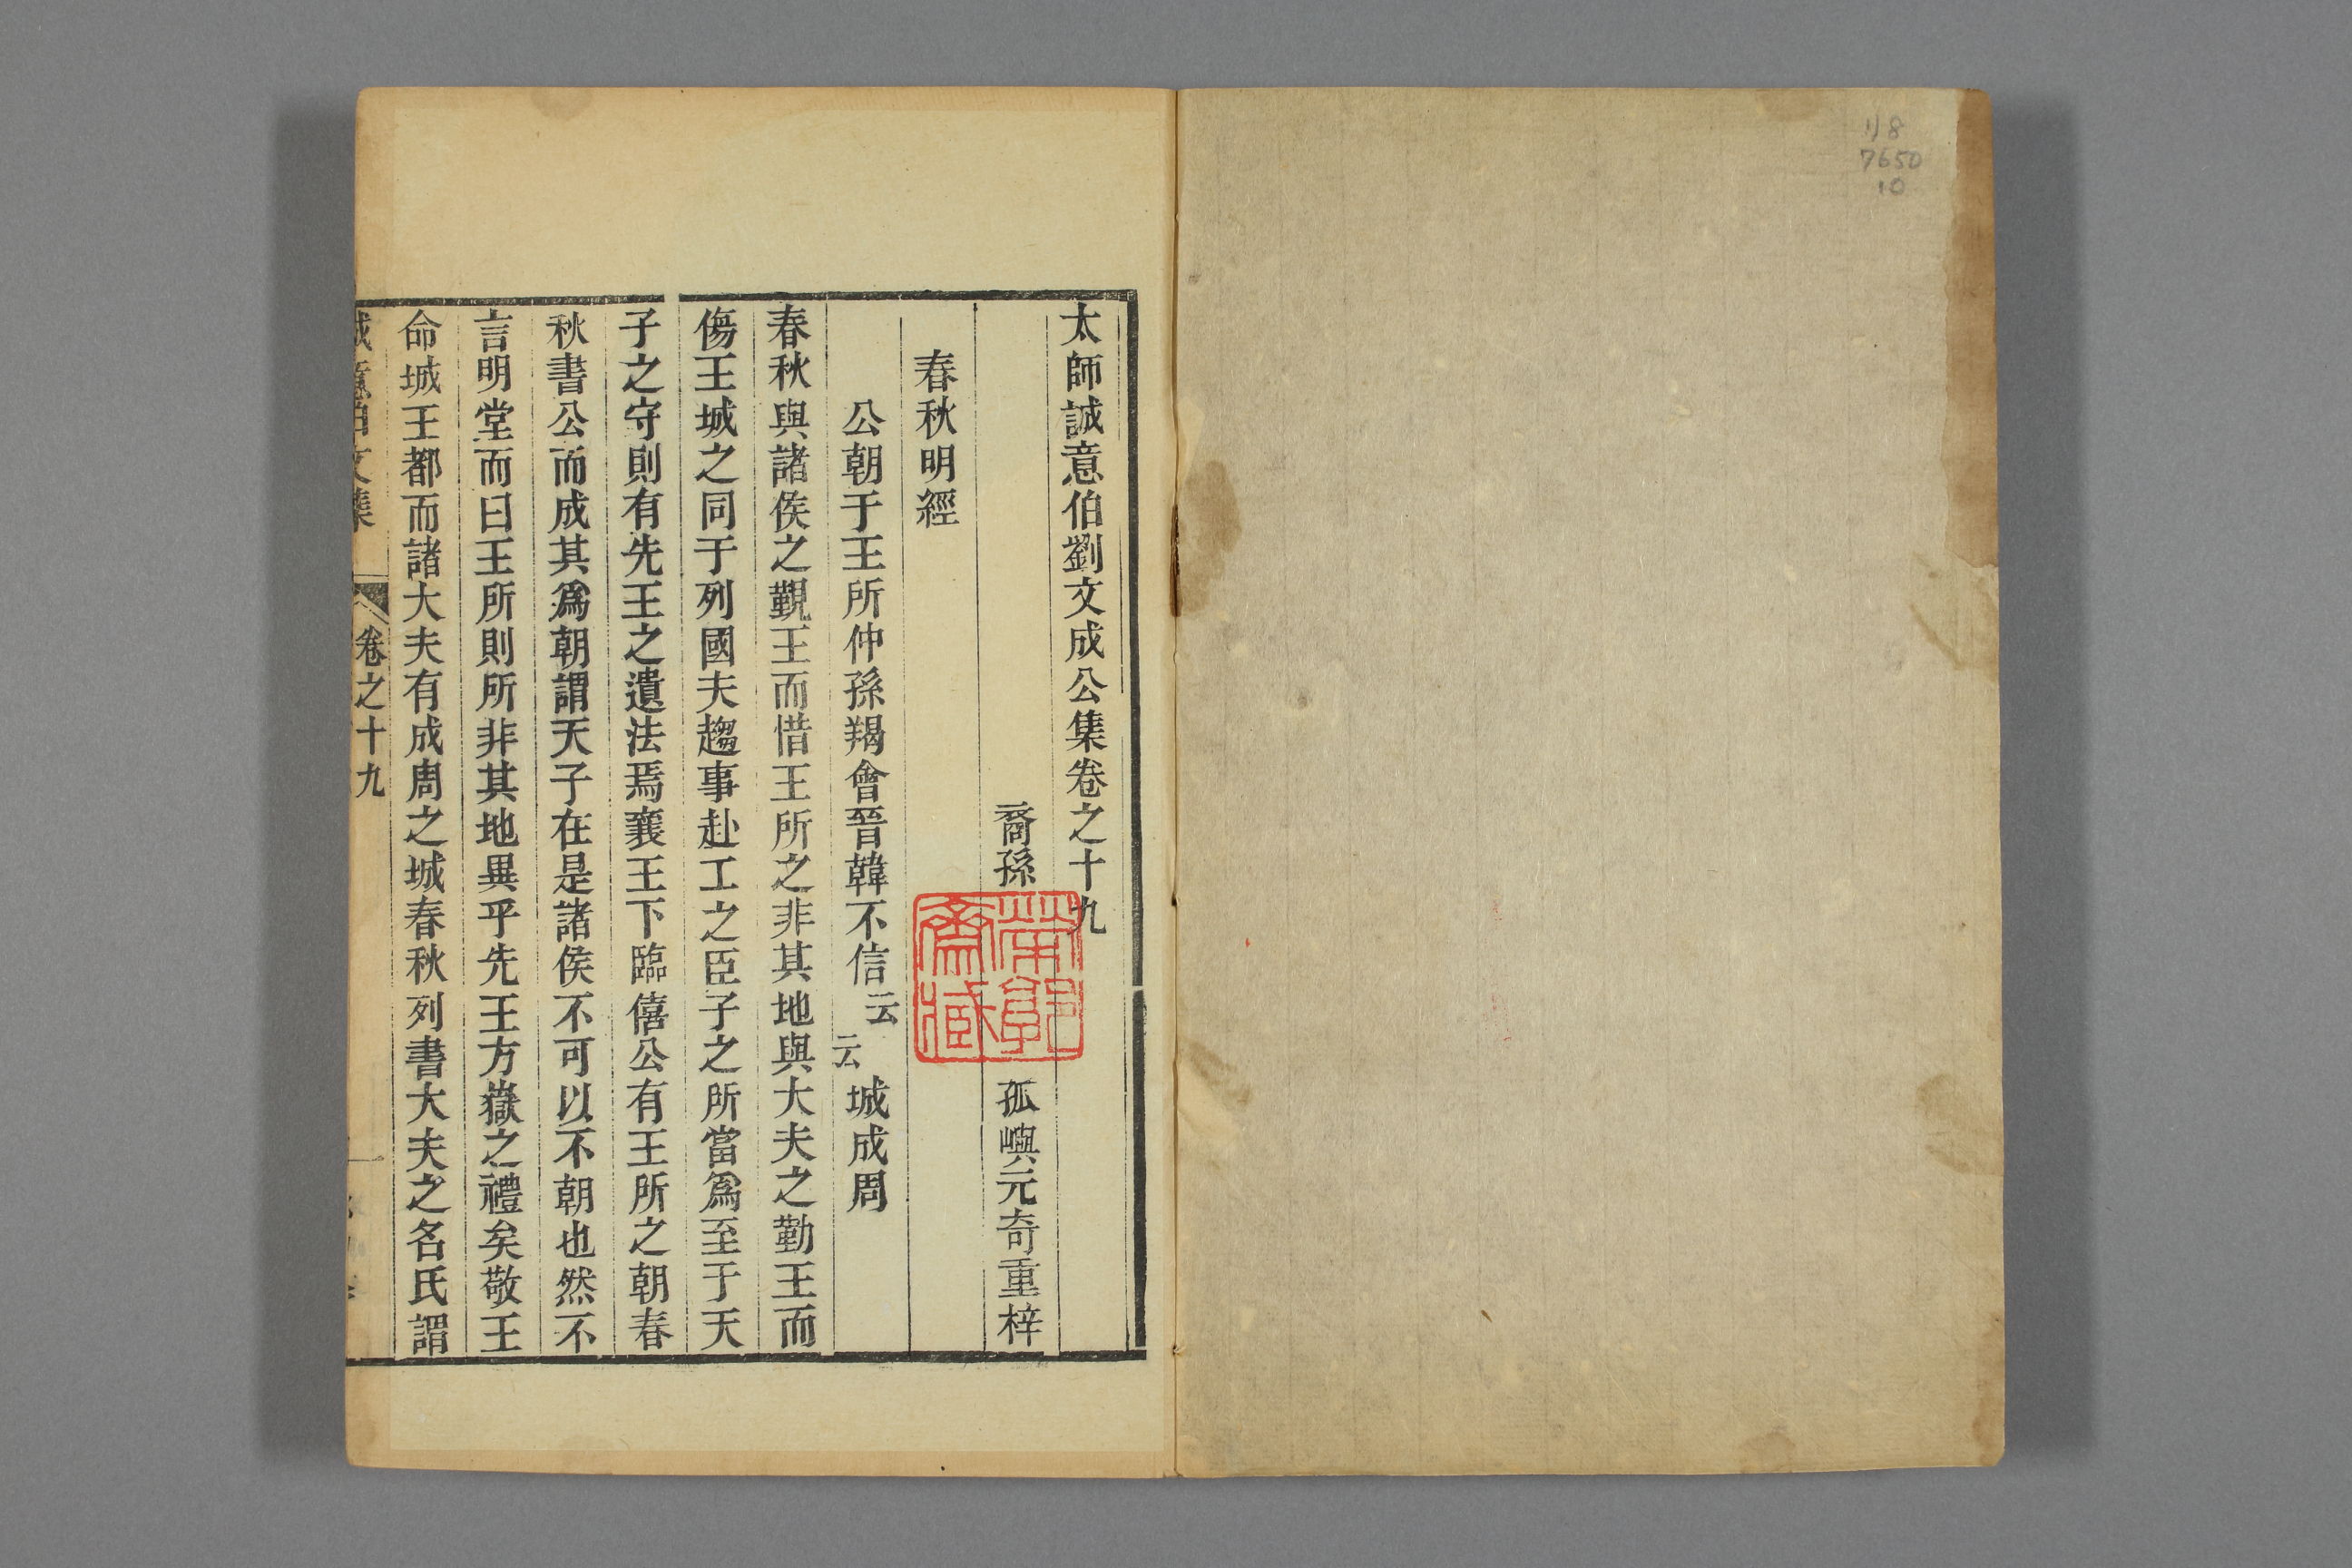 118
7650
10
太師誠意伯劉文成公集卷之十九
裔孫 孤嶼元奇重梓
春秋明經
公朝于王所仲孫羯會晉韓不信云云城成周
春秋與諸侯之覲王而惜王所之非其地與大夫之勤王而
傷王城之同于列國夫趨事赴工之臣子之所當爲至于天
子之守則有先王之遺法焉襄王下臨僖公有王所之朝春
秋書公而成其爲朝謂天子在是諸侯不可以不朝也然不
言明堂而曰王所則所非其地異乎先王方嶽之禮矣敬王
命城王都而諸大夫有成周之城春秋列書大夫之名氏謂
誠意伯文集 卷之十九 一